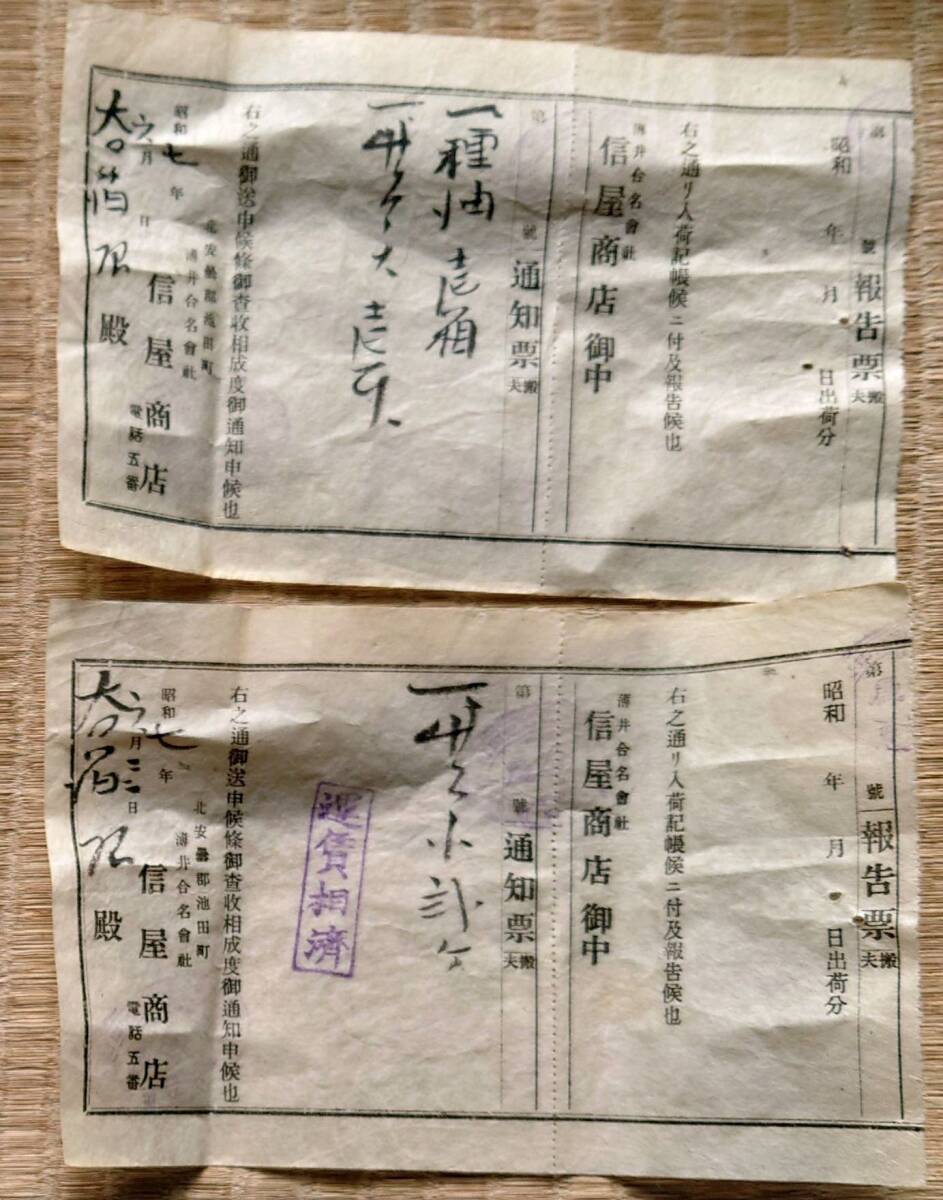 第 號 報告票 搬夫
昭和 年 月 日出荷分
右之通リ入荷記帳候ニ付及報告候也
薄井合名會社
信屋商店御中
第 號 通知票 搬夫
一種油壱箱
右之通御送申候條御査收相成度御通知申候也
北安曇郡池田町
薄井合名會社
信屋商店
電話五番
昭和七年六月 日
殿
第 號 報告票 搬夫
昭和 年 月 日出荷分
右之通リ入荷記帳候ニ付及報告候也
薄井合名會社
信屋商店御中
第 號 通知票 搬夫
運賃相濟
右之通御送申候條御査收相成度御通知申候也
北安曇郡池田町
薄井合名會社
信屋商店
電話五番
昭和七年六月三日
殿